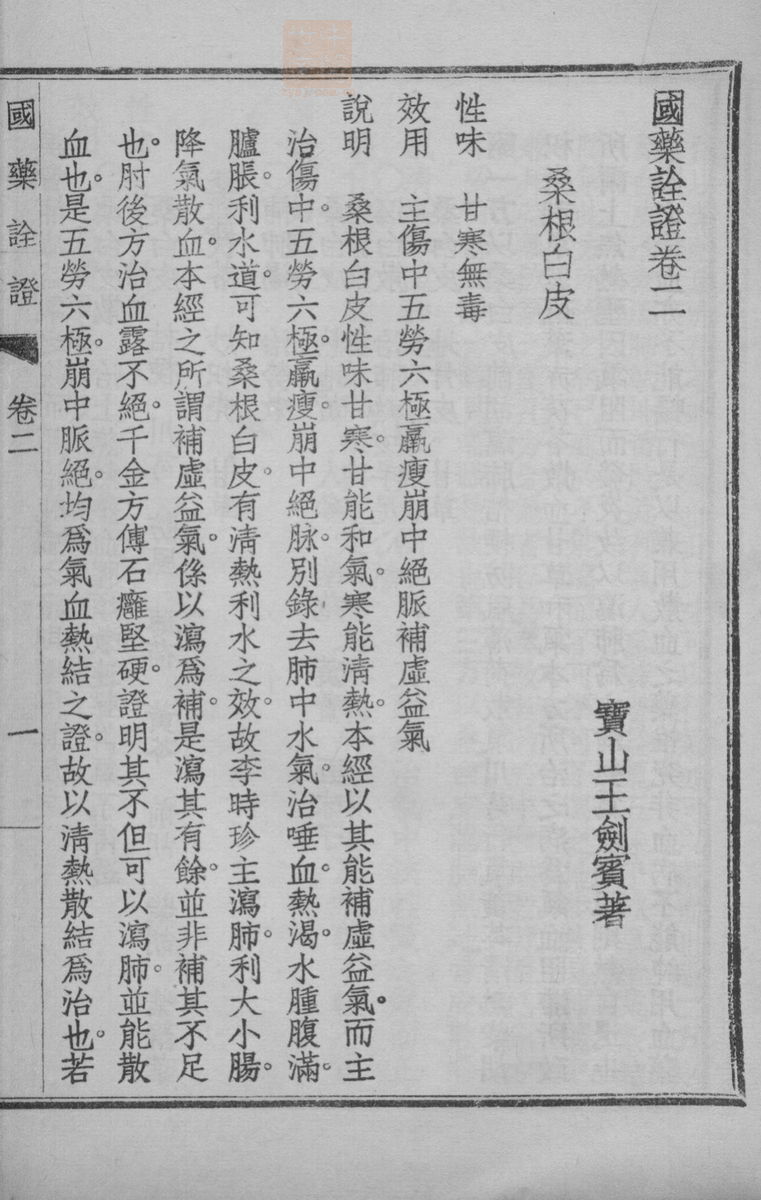 國藥詮證卷二
寶山王劍賓著
桑根白皮
性味　甘寒無毒
效用　主傷中五勞六極羸瘦崩中絕脈補虛益氣
說明　桑根白皮性味甘寒。甘能和氣。寒能清熱。本經以其能補虛益氣。而主
治傷中。五勞六極。羸瘦。崩中絕脉。別錄去肺中水氣。治唾血。熱渴。水腫。腹滿。
臚脹。利水道。可知桑根白皮。有清熱利水之效。故李時珍主瀉肺。利大小腸。
降氣散血。本經之所謂補虛益氣。係以瀉爲補。是瀉其有餘。並非補其不足
也。肘後方治血露不絕。千金方傅石癰堅硬。證明其不但可以瀉肺。並能散
血也。是五勞六極。崩中脈絕。均爲氣血熱結之證。故以清熱散結爲治也。若
國藥詮證　卷二　一